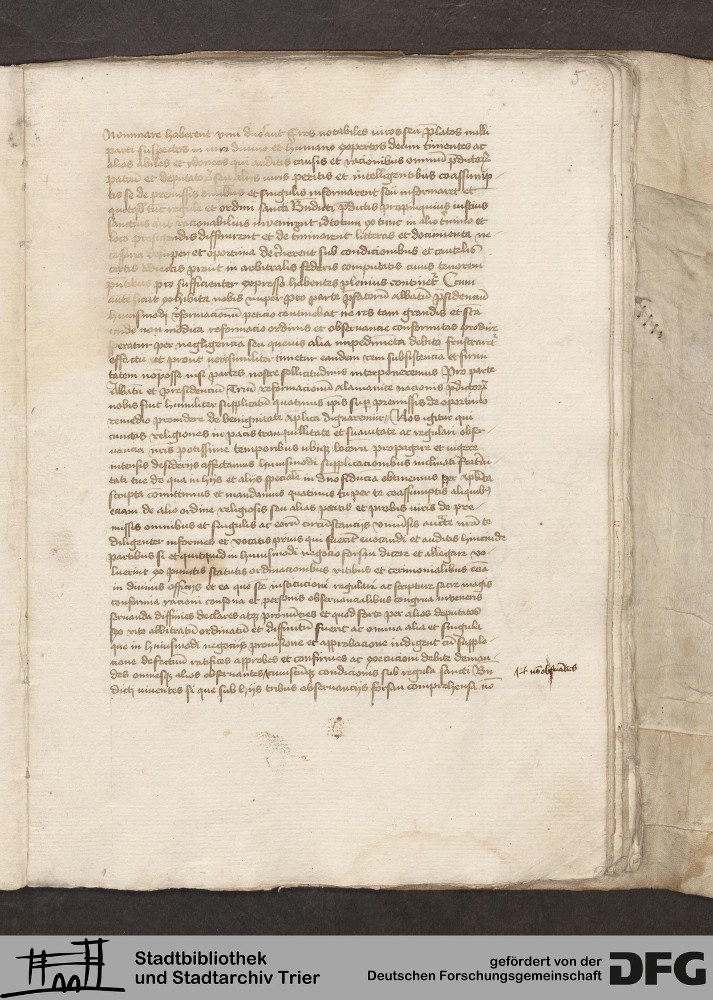 5
Nominare haberent vnu duos aut tres notabiles viros seu platos nulli
parti suspectos in iure diuino et humano expertos deum timentes ac
alias abiles et ydoneos qui auditis causis et racionibus omniu pdictor
partiu et deputator seu alijs iuris peritis et intelligentibus coassump
tis se de premissis omnibus et singulis informarent seu informaret et
quitqd tuc regule et ordini sancti Bndicti pdictis propinquius iustius
sanctius aut racionabilius inveniret id totum ex tunc in alio termino et
loco diffinirent et de terminarent litteras et documenta ne
cessaria semper et oportuna decernerent sub condicionibus et cautelis
certis adiectis prout in arbitralis federis computatis cuius tenorem
pntibus pro sufficienter expresso habentes plenius continet Cum
aute sicut exhibita nobis nuper pro parte pfatoru abbatu psidenciu
huiusmodi reformacionum peticio continebat ne res tam grandis et sta
unde non modica reformacio ordinis et obseruancie conformitas
speratur per negligencia seu queuis alia impedimeta debito frustraret
effectu et prout verisimiliter timetur eandem rem subsistencia et firmi
tatem no posse nisi partes nostre sollicitudinis interponeremus Pro parte
Abbatu et presidenciu triu reformacionu Alamanice nacionis pdictor
nobis fuit humiliter supplicatu quatinus ipis sup premissis de oportuno
remedio prouidere de benignitate aplica dignaremur Nos igitur qui
cunctas religiones in pacis tranquillitate et suauitate ac regulari obser
uancia nris potissime temporibus ubiq locoru propagare et vigere
intensis desiderijs affectamus huiusmodi supplicacionibus inclinati
tati tue de qua in hijs et alijs speciale in dno fiducia obtinemus per aplica
scripta comittimus et mandamus quatinus tu per te coassumptis aliquib
eciam de alio ordine religiosis seu alias peritis et probis viris de pre
missis omnibus et singulis ac eoru circustancijs vniuersis aucte nra te
diligenter informes et vocatis prius qui fuerit euocandi et auditis hincinde
partibus si et quitquid in huiusmodi negocio forsan dicere et allegare vo
luerint ex punctis statutis ordinacionibus ritibus et cerimonialibus ecia
in diuinis officijs et ea que sue institucioni regulari ac scripture sacre magis
conformia racioni consona et personis obseruancialibus congrua inveneris
seruanda diffinies declares atq pronuncies et quod forte per alios deputatos
hoc rite arbitratu ordinatu et diffinitu fuerit ac omnia alia et singula
que in huiusmodi negocijs prouisione et approbacione indigent cu supple
cione defectuu ratifices approbes et confirmes ac execucioni debite deman
des omnesq alios obseruantes cuiuscuq condicionis sub regula sancti Bn
dicti viuentes si que sub hijs tribus obseruancijs forsan comprehensi no
et no obseruates
Stadtbibliothek
und Stadtarchiv Trier
gefördert von der
Deutschen Forschungsgemeinschaft
DFG